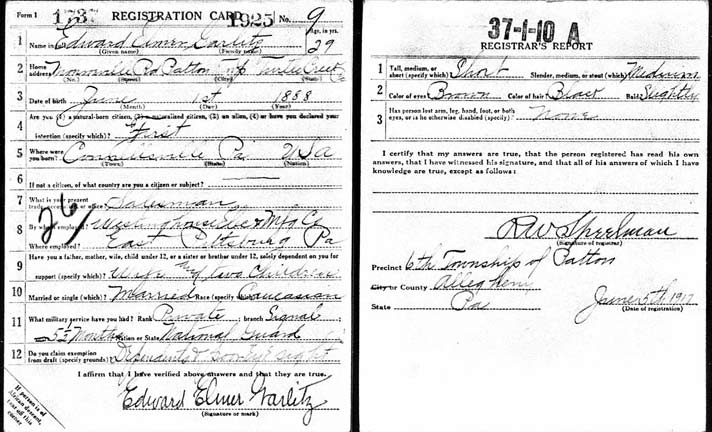 Form 1 1737 REGISTRATION CARD 1925 No. 9
1 Name in full Edward Elmer Garlitz Age, in yrs. 29
(Given name) (Family name)
2 Home address Monroeville Rd Patton Twp Turtle Creek Pa
(No.) (Street) (City) (State)
3 Date of birth June 1st 1888
(Month) (Day) (Year)
4 Are you (1) a natural-born citizen, (2) a naturalized citizen, (3) an alien, (4) or have you declared your
intention (specify which)? First
5 Where were you born? Connellsville Pa USA
(Town) (State) (Nation)
6 If not a citizen, of what country are you a citizen or subject?
7 What is your present trade, occupation, or office? Salesman
26
8 By whom employed? Westinghouse Elec & Mfg Co
Where employed? East Pittsburg Pa
9 Have you a father, mother, wife, child under 12, or a sister or brother under 12, solely dependent on you for
support (specify which)? Wife & two Children
10 Married or single (which)? Married Race (specify which)? Caucasian
11 What military service have you had? Rank Private ; branch Signal ;
Months Nation or State National Guard
12 Do you claim exemption from draft (specify grounds)? Dependents & poor eye sight
I affirm that I have verified above answers and that they are true.
Edward Elmer Garlitz
(Signature or mark)
If person is of
African descent,
tear off this
corner
37-1-10 A
REGISTRAR'S REPORT
1 Tall, medium, or short (specify which)? Short Slender, medium, or stout (which)? Medium
2 Color of eyes Brown Color of hair Black Bald Slightly
3 Has person lost arm, leg, hand, foot, or both
eyes, or is he otherwise disabled (specify)? None
I certify that my answers are true, that the person registered has read his own
answers, that I have witnessed his signature, and that all of his answers of which I have
knowledge are true, except as follows:
(Signature of registrar)
Precinct 6th Township of Patton
City or County Allegheny
State Pa June 5th 1917
(Date of registration)